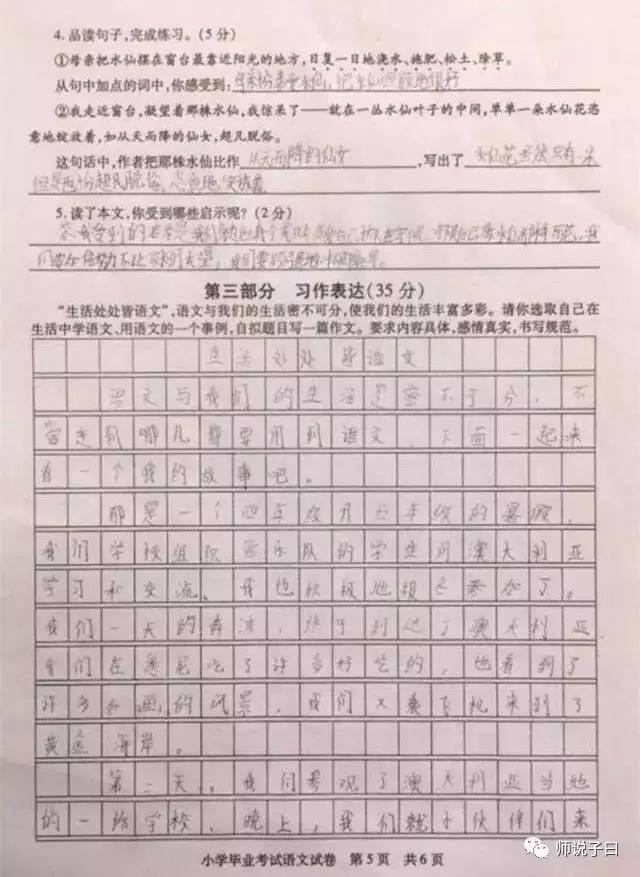 4.品读句子,完成练习。(5分)
①母亲把水仙摆在窗台最靠近阳光的地方,日复一日地浇水、施肥、松土、除草。
从句中加点的词中,你感觉到:
②我走近窗台,凝望着那株水仙,我惊呆了——就在一丛水仙叶子的中间,单单一朵水仙花恣
意地绽放着,如从天而降的仙女,超凡脱俗。
这句话中,作者把那株水仙比作 从天而降的仙女 ,写出了
5.读了本文,你受到哪些启示呢?(2分)
第三部分 习作表达(35分)
"生活处处皆语文",语文与我们的生活密不可分,使我们的生活丰富多彩。请你选取自己在
生活中学语文、用语文的一个事例,自拟题目写一篇作文。要求内容具体,感情真实,书写规范。
生活处处皆语文
语文与我们的生活是密不可分,不
管走到哪儿都要用到语文,下面一起来
看一个我的故事吧。
那是一个四年级升五年级的暑假,
我们学校组织音乐队的学生到澳大利亚
学习和交流。我也积极地报名参加了。
我们一天的奔波,终于到达了澳大利亚
我们在悉尼吃了许多好吃的,也看到了
许多如画的风景,我们又乘飞机来到了
黄金海岸。
第二天,我们参观了澳大利亚当地
的一所学校,晚上,我们就小伙伴们来
小学毕业考试语文试卷 第5页 共6页
师说子曰